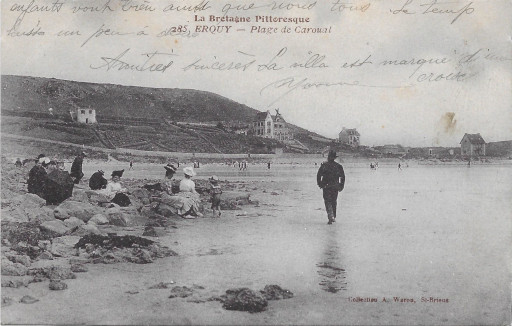 enfants vont bien ainsi que nous tous
le temp
La Bretagne Pittoresque
laisse un peu à
285. ERQUY — Plage de Caroual
Amitiés sincères La villa est marquée d'une
Yvonne
croix
Collection A. Waron, St-Brieuc